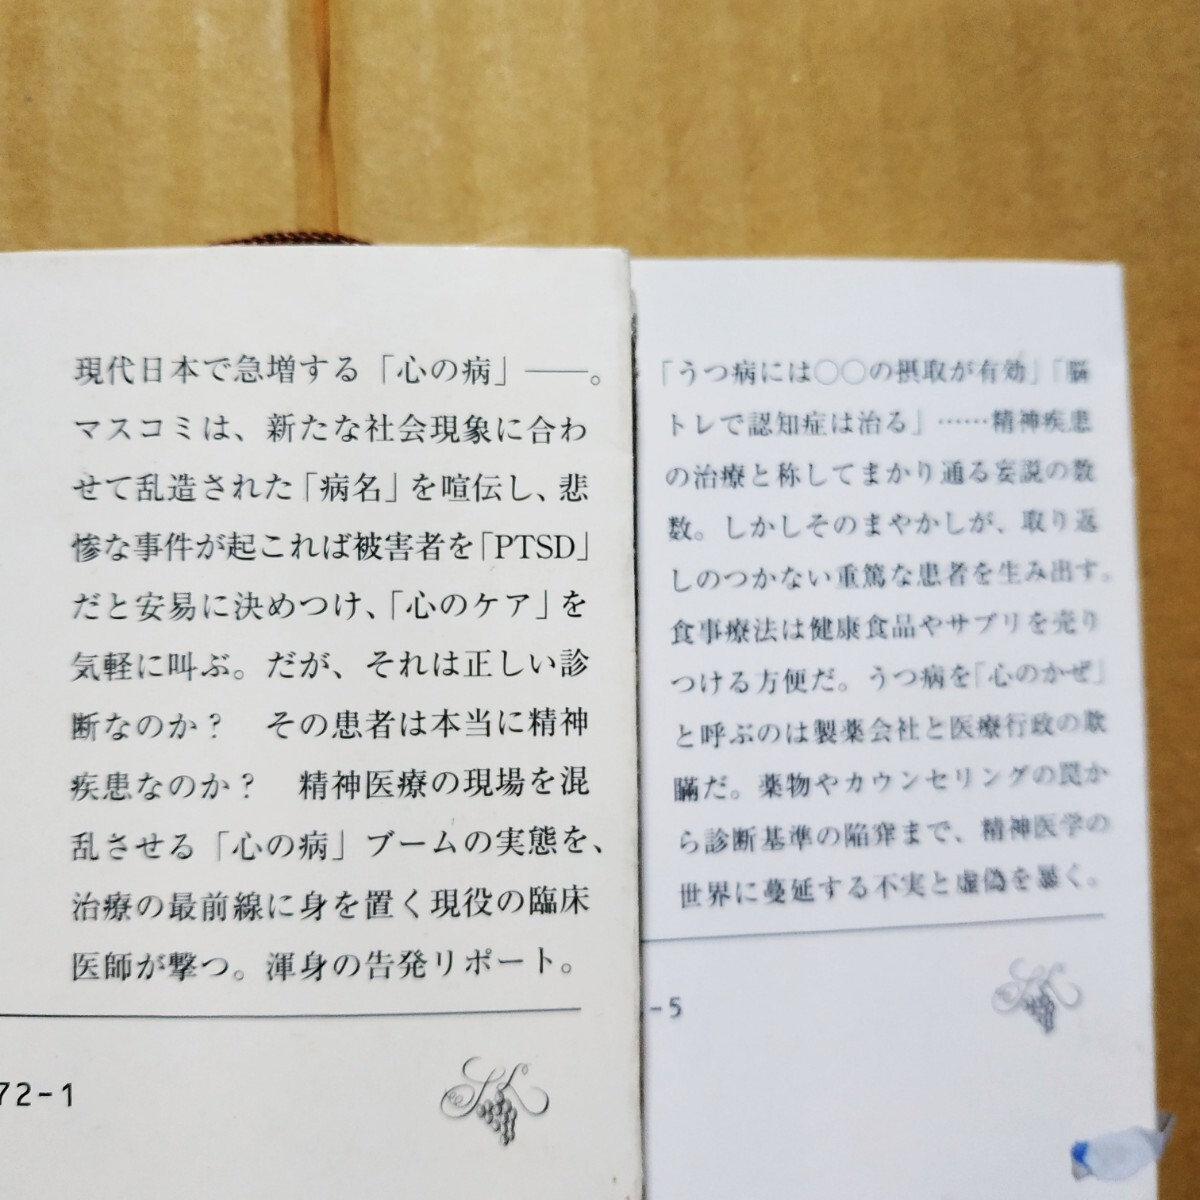 現代日本で急増する「心の病」――。
マスコミは、新たな社会現象に合わ
せて乱造された「病名」を喧伝し、悲
惨な事件が起これば被害者を「PTSD」
だと安易に決めつけ、「心のケア」を
気軽に叫ぶ。だが、それは正しい診
断なのか？　その患者は本当に精神
疾患なのか？　精神医療の現場を混
乱させる「心の病」ブームの実態を、
治療の最前線に身を置く現役の臨床
医師が撃つ。渾身の告発リポート。
72-1
「うつ病には○○の摂取が有効」「脳
トレで認知症は治る」……精神疾患
の治療と称してまかり通る妄説の数
数。しかしそのまやかしが、取り返
しのつかない重篤な患者を生み出す。
食事療法は健康食品やサプリを売り
つける方便だ。うつ病を「心のかぜ」
と呼ぶのは製薬会社と医療行政の欺
瞞だ。薬物やカウンセリングの罠か
ら診断基準の陥穽まで、精神医学の
世界に蔓延する不実と虚偽を暴く。
-5